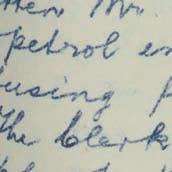 Mr.
petrol en
using f
The clerk